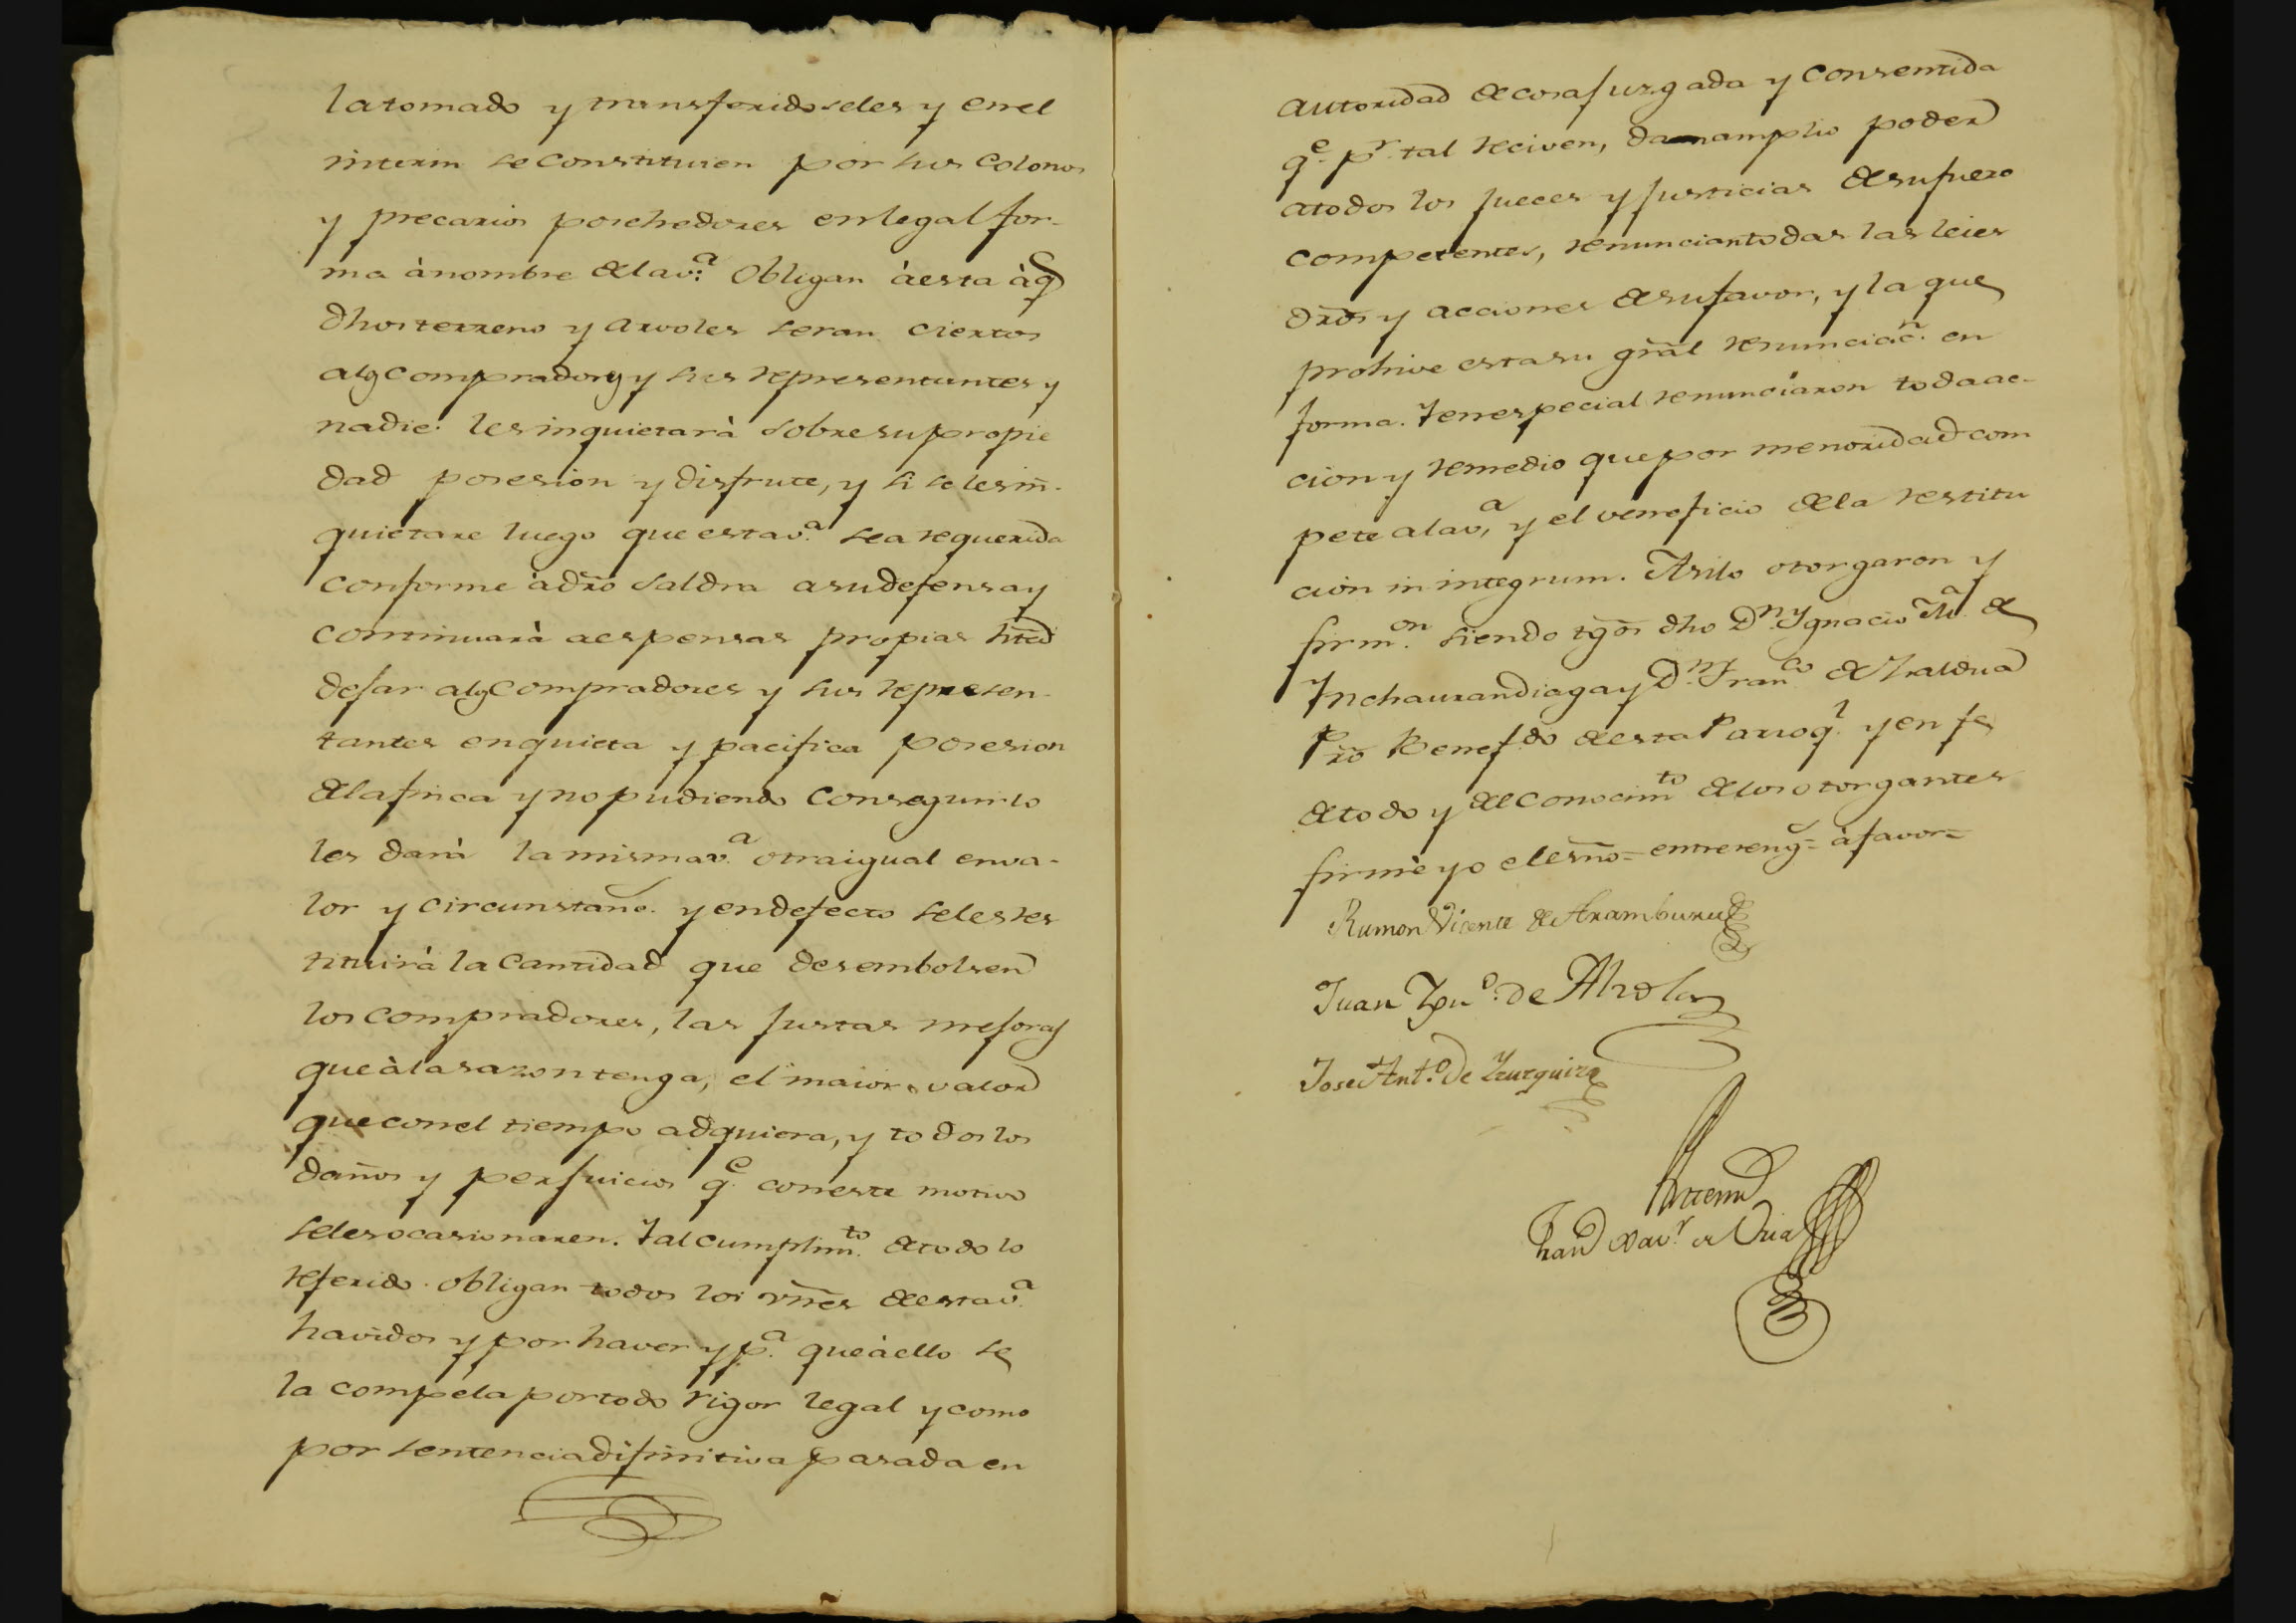 la tomado y transferidoseles y en el
interin se constituien por sus Colonos
y precarios poshedores en legal for-
ma à nombre de la v.ª Obligan à esta à q.e
dhos terreno y arvoles seran ciertos
a los compradores y sus representantes y
nadie les inquietarà sobre su propie
dad posesion y disfrute, y si se les in-
quietare luego que esta v.ª sea requerida
conforme à dro saldra a su defensa y
continuarà a espensas propias hta
dejar a los compradores y sus represen-
tantes en quieta y pacifica posesion
de la finca y no pudiendo conseguirlo
les darà la misma v.ª otra igual en va-
lor y circunstanc. y en defecto se les res
tituirà la cantidad que desembolsen
los compradores, las justas mejoras
que à la sazon tenga, el maior valor
que con el tiempo adquiera, y todos los
daños y perjuicios q.e con este motivo
se les ocasionaren. Y al cumplim.to de todo lo
referido obligan todos los vnes de esta v.ª
havidos y por haver y p.ª que à ello se
la compela por todo rigor legal y como
por sentencia difinitiva pasada en
autoridad de cosa juzgada y consentida
q.e p.r tal reciven, dan amplio poder
a todos los jueces y justicias de su fuero
competentes, renuncian todas las leies
dros y acciones de su favor, y la que
prohive esta su gral renunciac.n en
forma. Y en especial renunciaron toda ac-
cion y remedio que por menoridad com
pete a la v.ª, y el veneficio de la restitu
cion in integrum. Asi lo otorgaron y
firm.on siendo tgos dho D.n Ygnacio M.ª de
Ynchaurandiaga y D.n Fran.co de Zaldua
Pro Benef.do de esta Parroq.l y en fe
de todo y del conocim.to de los otorgantes
firmè yo el esno = entrereng.s = à favor =
Ramon Vicente de Aramburu
Juan Ygn.o de Alzola
Jose Ant.o de Yzurquiza
Ante mi
Fran Xav.r de Oria